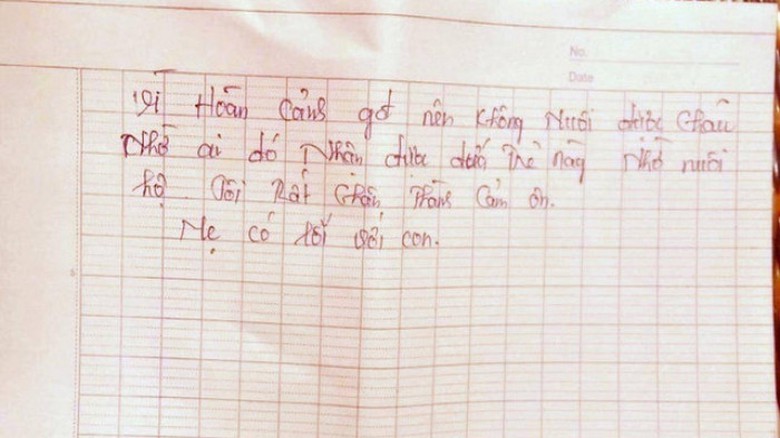 No.
Date
Vì Hoàn Cảnh gđ nên Không Nuôi được Cháu
Nhờ ai đó Nhân được đứa Trẻ này Nhờ nuôi
hộ. Tôi Rất Chân Thành Cảm ơn.
Mẹ có lỗi với con.